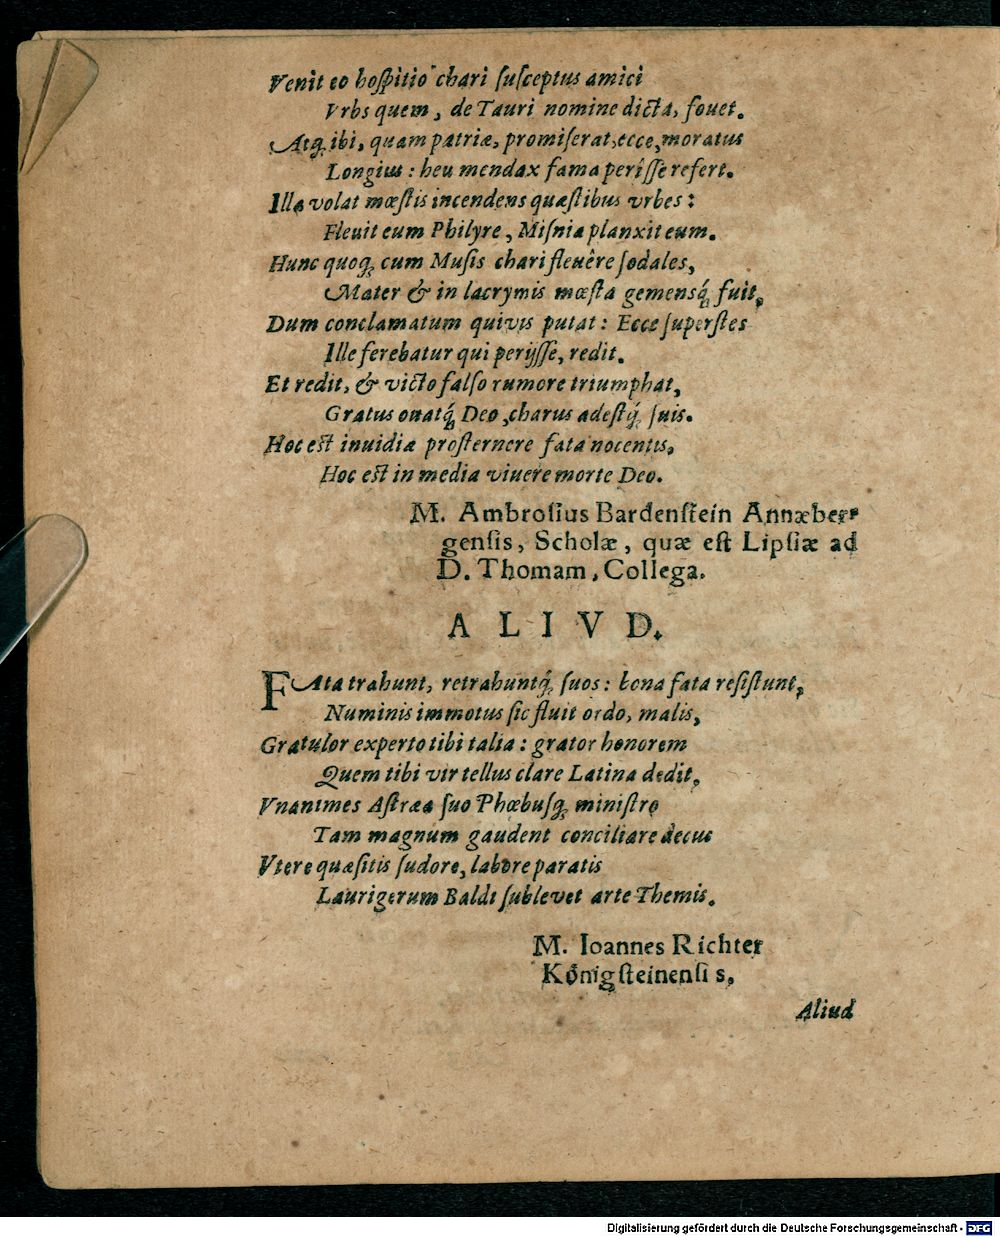 Venit eo hoſpitio chari ſuſceptus amici
Vrbs quem, de Tauri nomine dicta, fouet.
Atq́ ibi, quam patriæ, promiſerat, ecce, moratus
Longius: heu mendax fama periſſe refert.
Illa volat mœſtis incendens quæſtibus vrbes:
Fleuit eum Philyre, Miſnia planxit eum.
Hunc quoq́ cum Muſis chari fleuêre ſodales,
Mater & in lacrymis mœſta gemensq́ fuit,
Dum conclamatum quivis putat: Ecce ſuperſtes
Ille ferebatur qui perijſſe, redit.
Et redit, & victo falſo rumore triumphat,
Gratus ouatq́ Deo, charus adeſtq́ ſuis.
Hoc eſt inuidiæ proſternere fata nocentis,
Hoc eſt in media viuere morte Deo.
M. Ambroſius Bardenſtein Annæber-
genſis, Scholæ, quæ eſt Lipſiæ ad
D. Thomam, Collega.
ALIVD.
FAta trahunt, retrahuntq́ ſuos: bona fata reſiſtunt,
Numinis immotus ſic fluit ordo, malis,
Gratulor experto tibi talia: grator honorem
Quem tibi vir tellus clare Latina dedit,
Vnanimes Aſtræa ſuo Phœbuſq́ miniſtro
Tam magnum gaudent conciliare decus
Vtere quæſitis ſudore, labore paratis
Laurigerum Baldi ſublevet arte Themis.
M. Ioannes Richter
Königſteinenſis,
Aliud
Digitalisierung gefördert durch die Deutsche Forschungsgemeinschaft - DFG